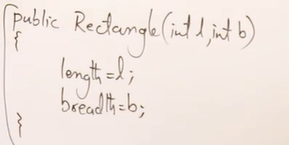 public Rectangle(int l,int b)
{
length=l;
breadth=b;
}